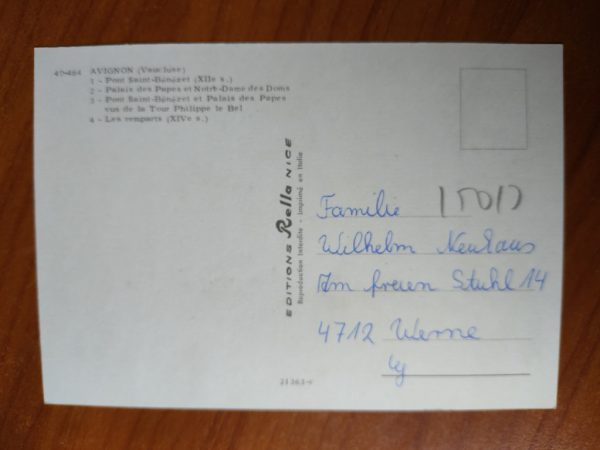 49-484 AVIGNON (Vaucluse)
1 - Pont Saint-Bénézet (XIIe s.)
2 - Palais des Papes et Notre-Dame des Doms
3 - Pont Saint-Bénézet et Palais des Papes
vus de la Tour Philippe le Bel
4 - Les remparts (XIVe s.)
EDITIONS Rella NICE
Reproduction Interdite - Imprimé en Italie
Familie
Wilhelm Neuhaus
Am freien Stuhl 14
4712 Werne